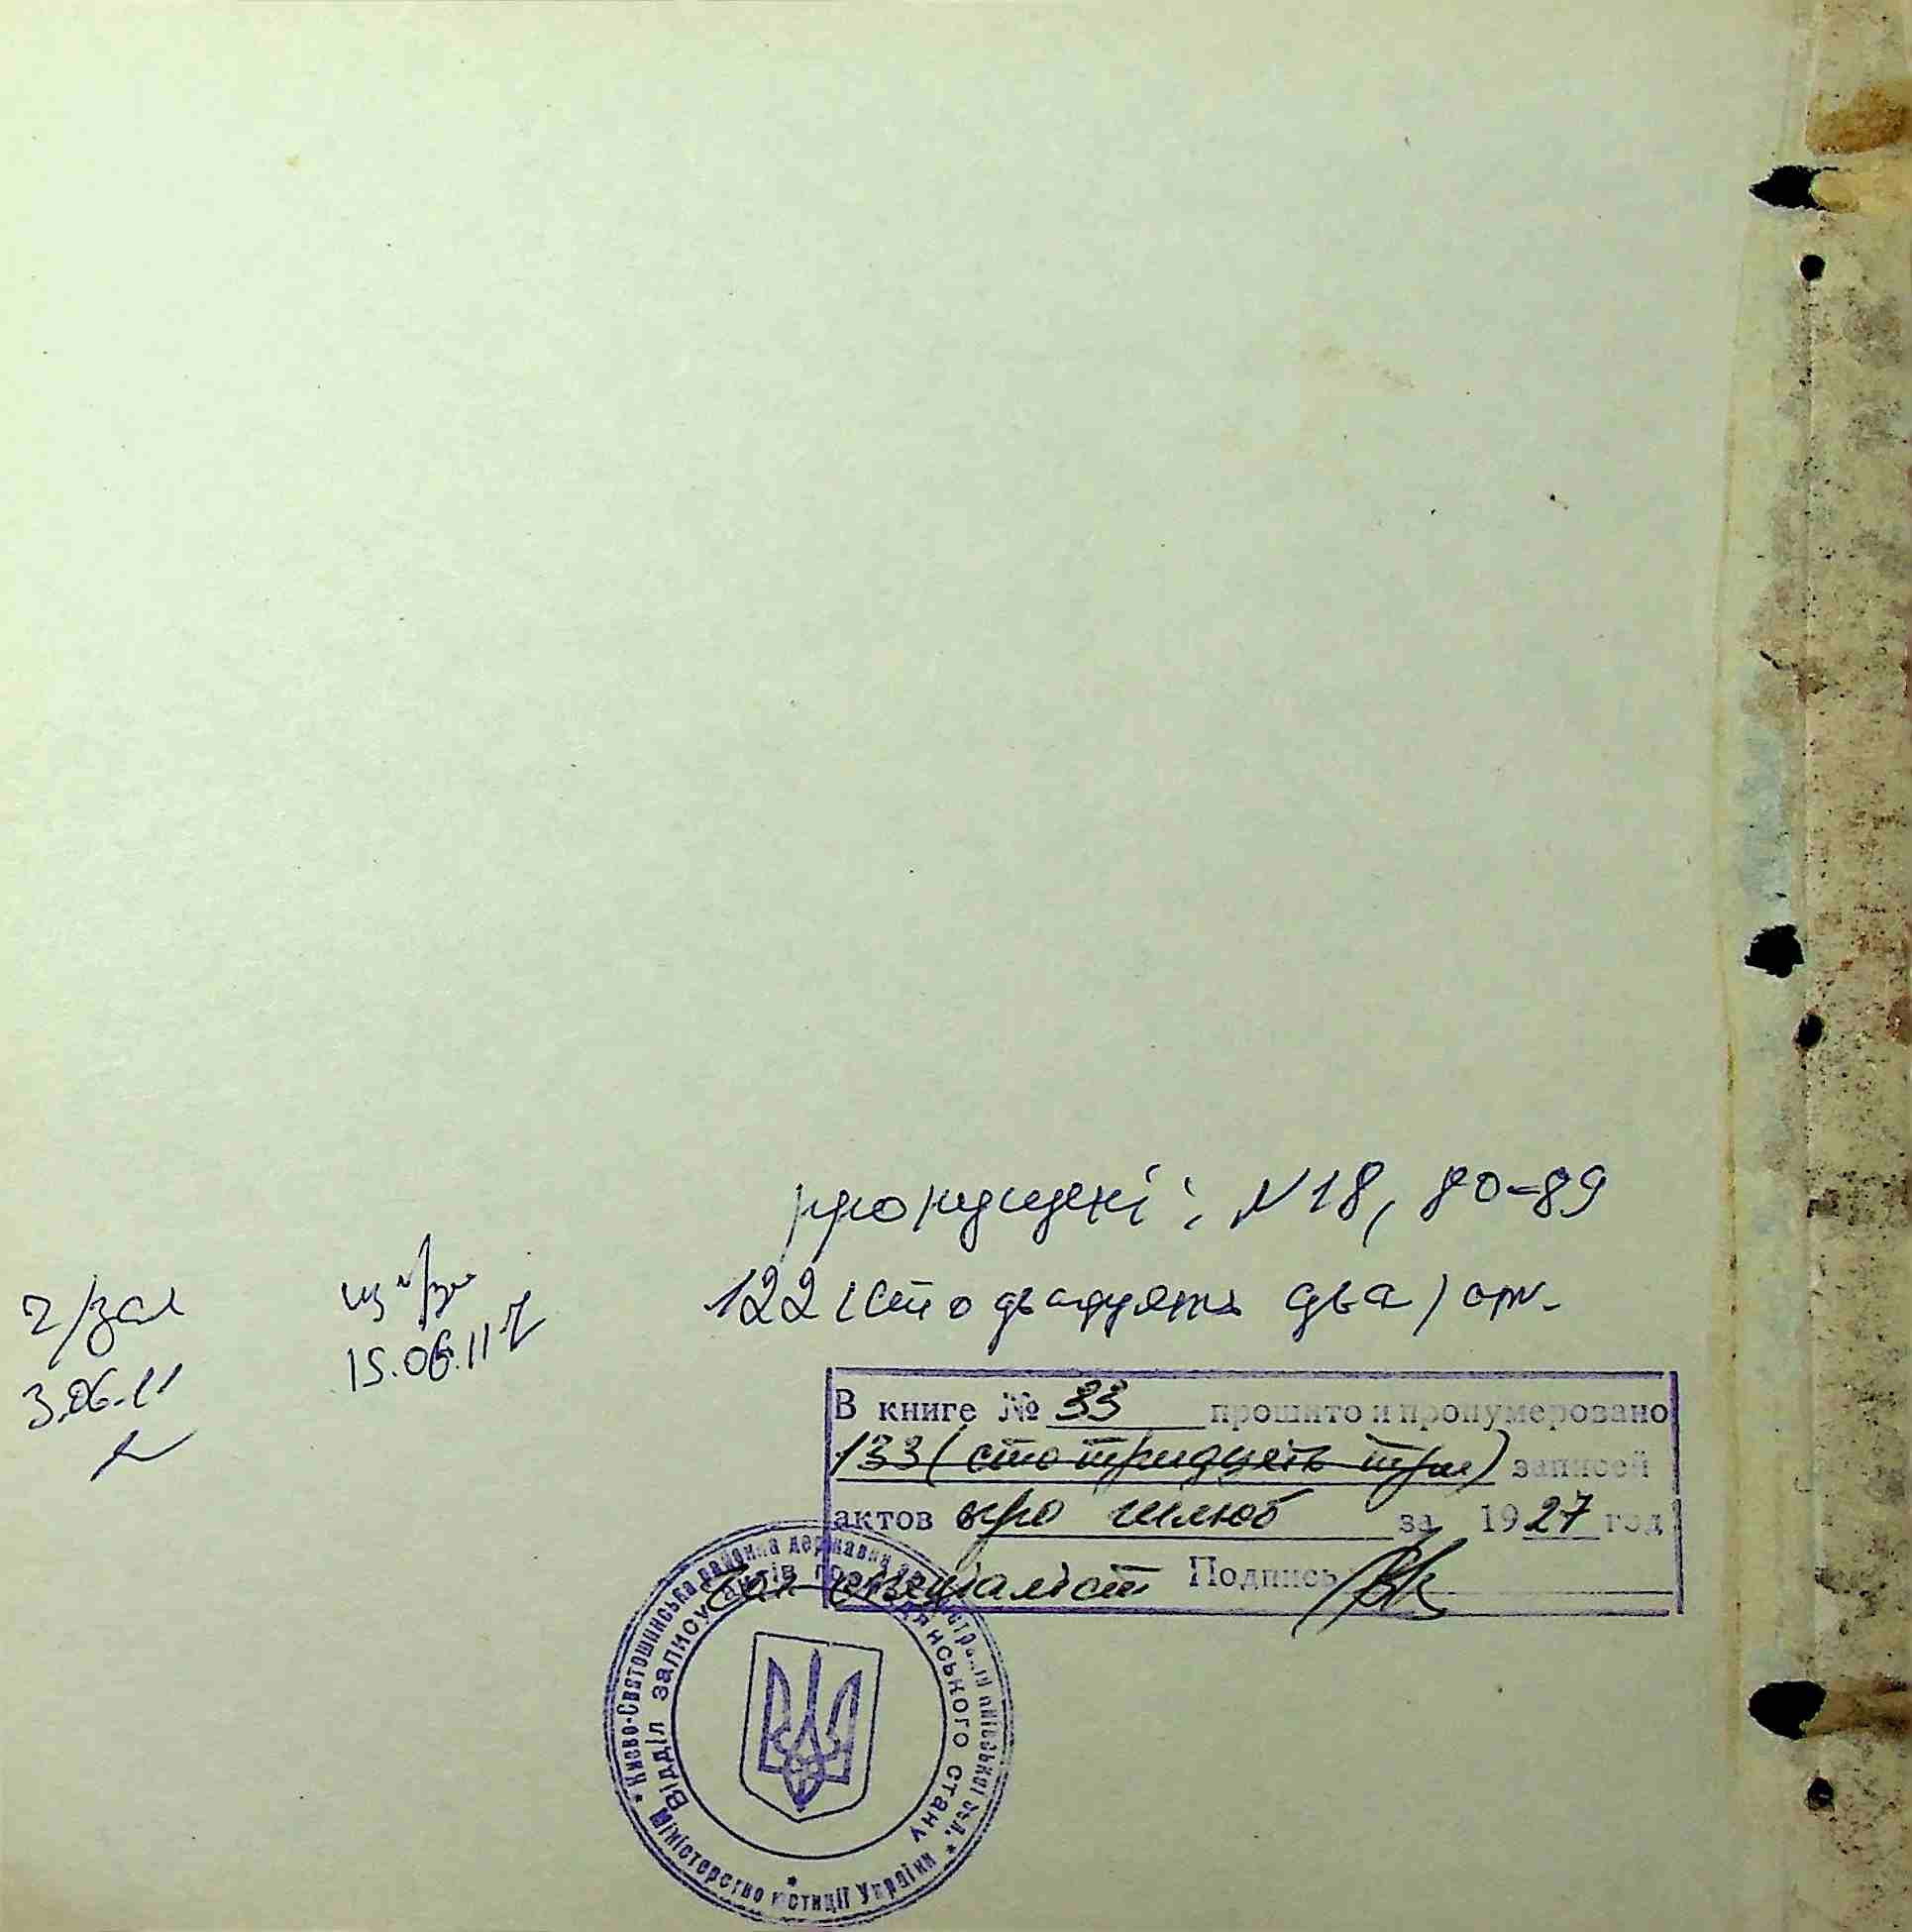 пропущені: N 18, 80-89
122 (сто двадцять два) арк.
ч/зал
3.06.11
из ч/з
15.06.11
В книге № 33 прошито и пронумеровано
133 (сто тридцать три) записей
актов про шлюб за 1927 год
спеціаліст Подпись
* Києво-Святошинська районна державна адміністрація Київської обл. *
Відділ запису актів громадянського стану
Міністерство юстиції України